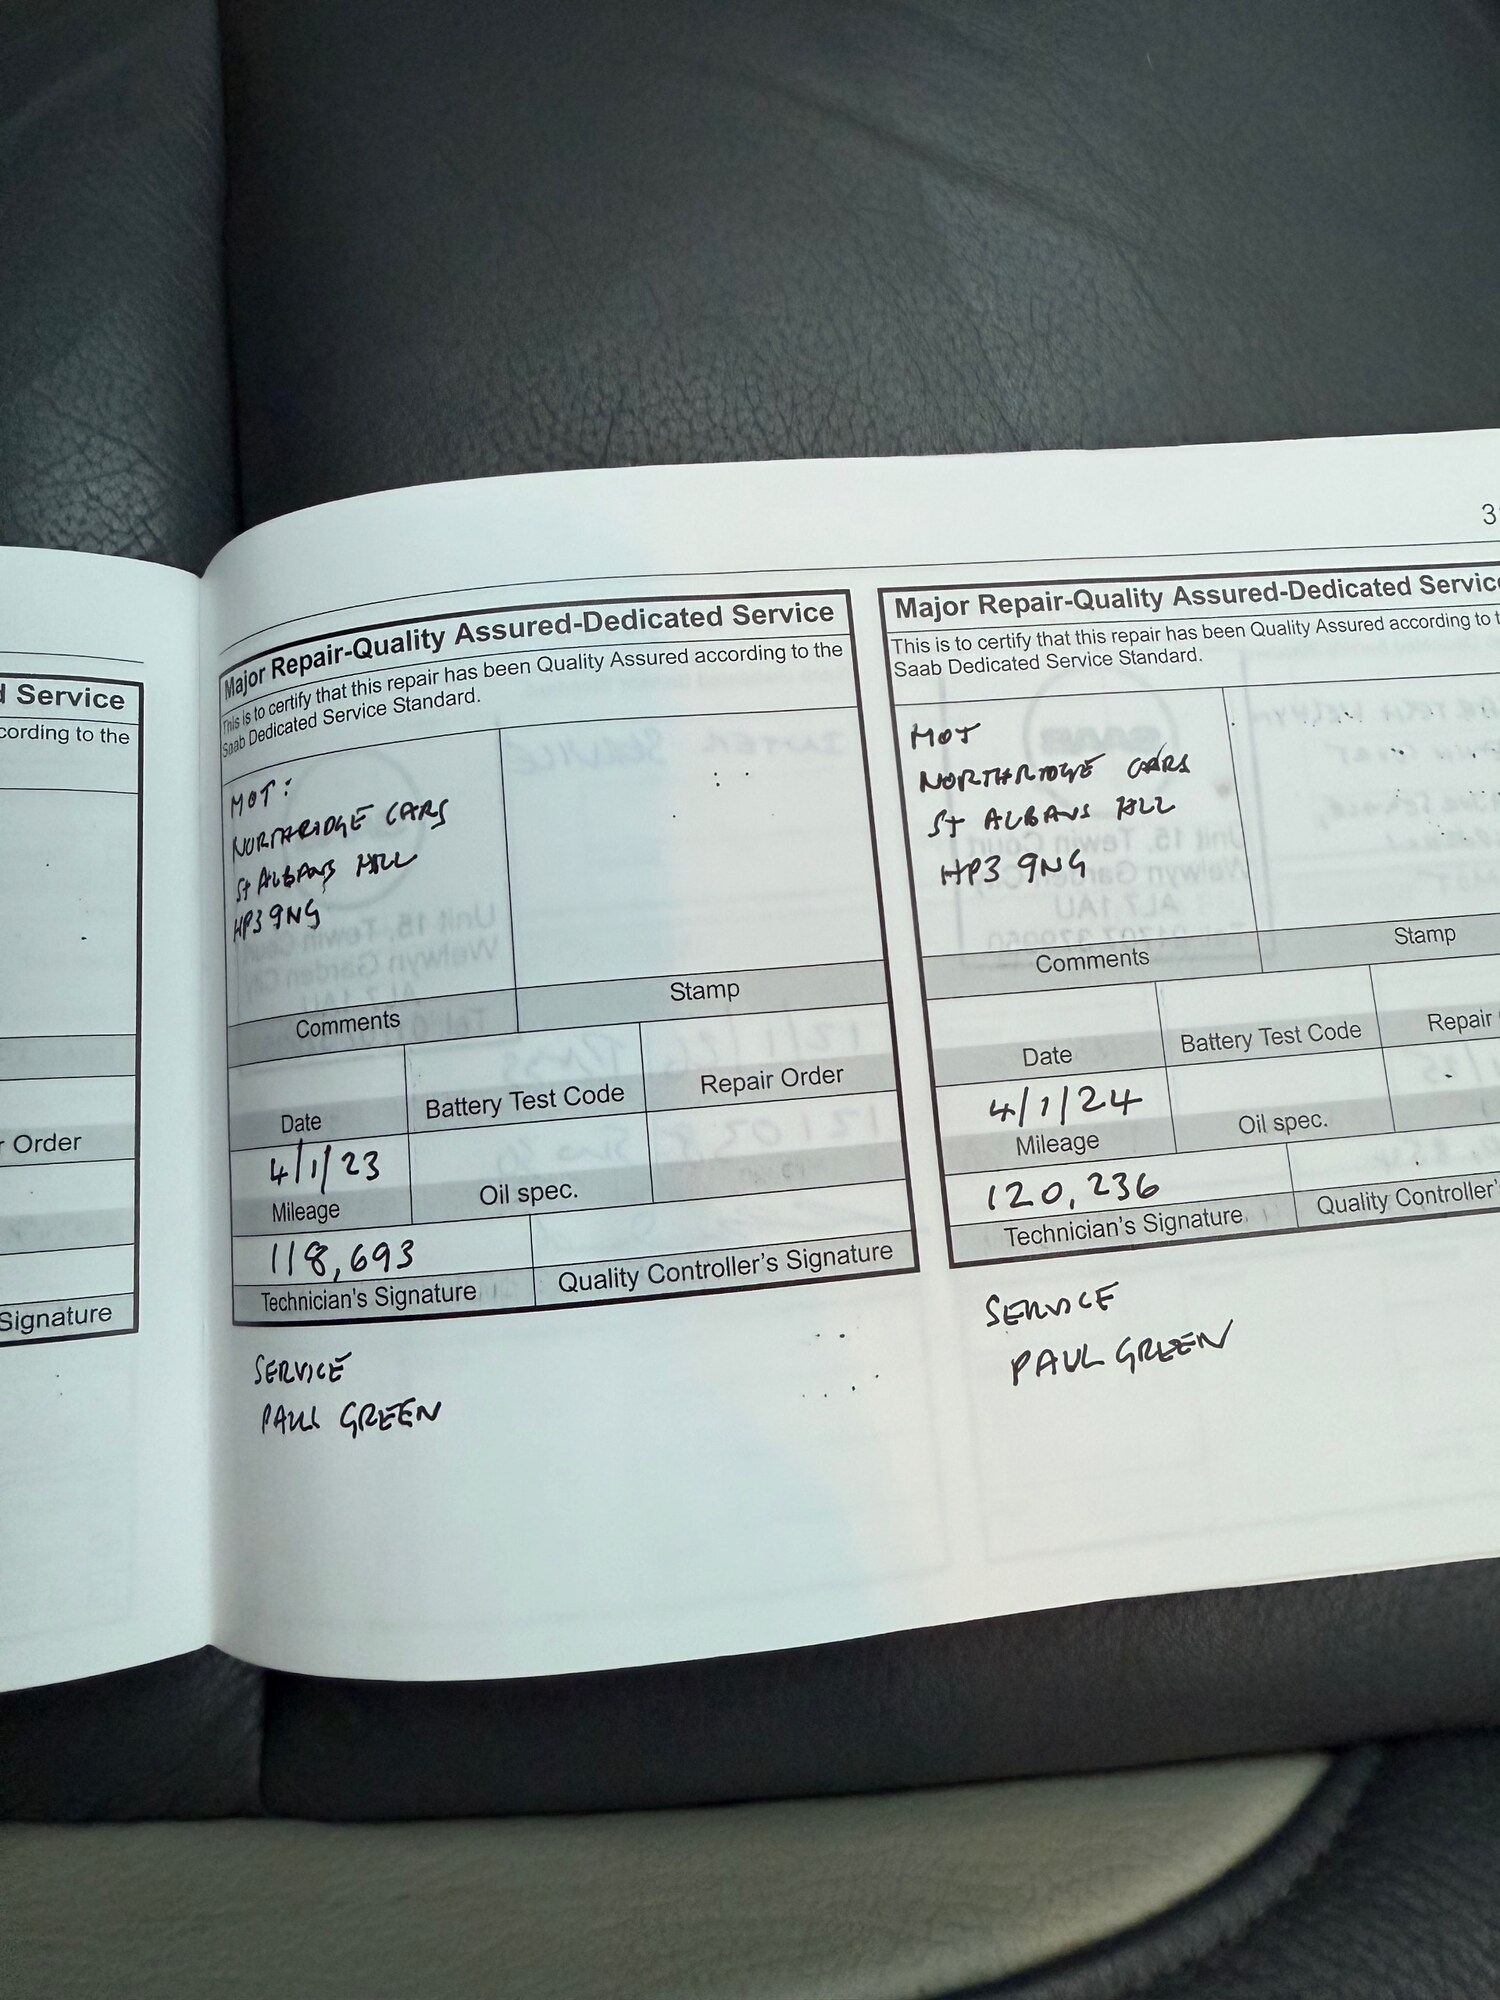 d Service
cording to the
r Order
Signature
Major Repair-Quality Assured-Dedicated Service
This is to certify that this repair has been Quality Assured according to the
Saab Dedicated Service Standard.
MOT:
NORTHRIDGE CARS
St ALBANS HILL
HP3 9NG
Comments
Stamp
Date
Battery Test Code
Repair Order
4/1/23
Mileage
Oil spec.
118,693
Technician's Signature
Quality Controller's Signature
SERVICE
PAUL GREEN
3
Major Repair-Quality Assured-Dedicated Servic
This is to certify that this repair has been Quality Assured according to t
Saab Dedicated Service Standard.
MOT
NORTHRIDGE CARS
St ALBANS HILL
HP3 9NG
Comments
Stamp
Date
Battery Test Code
Repair
4/1/24
Mileage
Oil spec.
120,236
Technician's Signature
Quality Controller's
SERVICE
PAUL GREEN